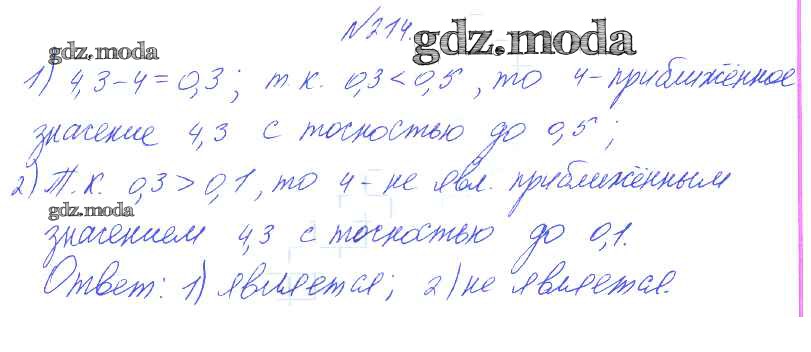 №214.
gdz.moda
gdz.moda
1) 4,3-4=0,3; т.к. 0,3<0,5, то 4-приближённое
значение 4,3 с точностью до 0,5;
2) Т.к. 0,3>0,1, то 4-не явл. приближённым
gdz.moda
значением 4,3 с точностью до 0,1.
Ответ: 1) является; 2) не является.